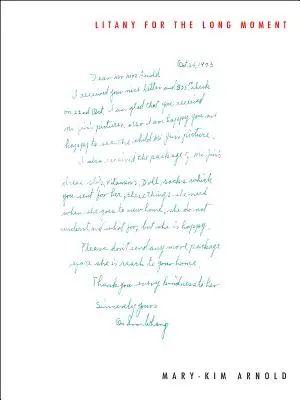 LITANY FOR THE LONG MOMENT
Oct 26, 1973
Dear Mr Mrs Arnold
I received your nice letter and check
on 22nd Oct. I am glad that you received
Mi Jin's pictures, also I am happy you are
happy to see the child Mi Jin's picture.
I also received the package of Mi Jin's
dress, slip, vitamins, Doll, socks which
you sent for her, these things she need
when she goes to new home, she do not
understand what for, but she is happy.
Please don't send any more package
before she is reach to your home.
Thank you every kindness to her
Sincerely yours
MARY-KIM ARNOLD